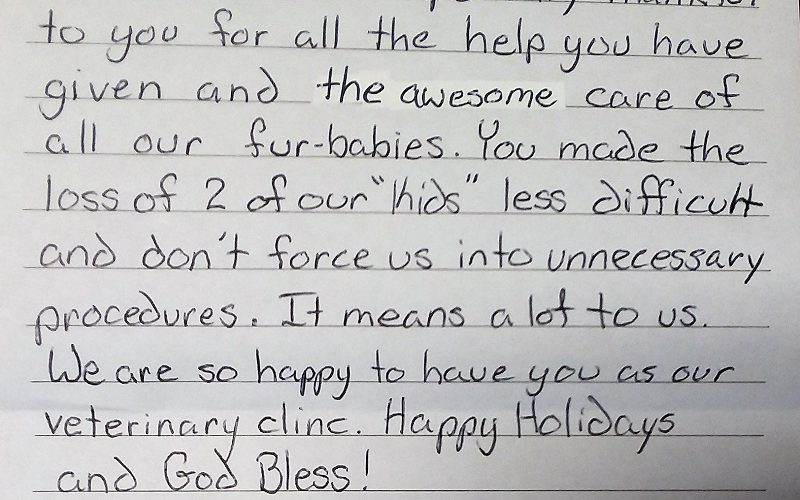 to you for all the help you have
given and the awesome care of
all our fur-babies. You made the
loss of 2 of our "kids" less difficult
and don't force us into unnecessary
procedures. It means a lot to us.
We are so happy to have you as our
veterinary clinc. Happy Holidays
and God Bless!